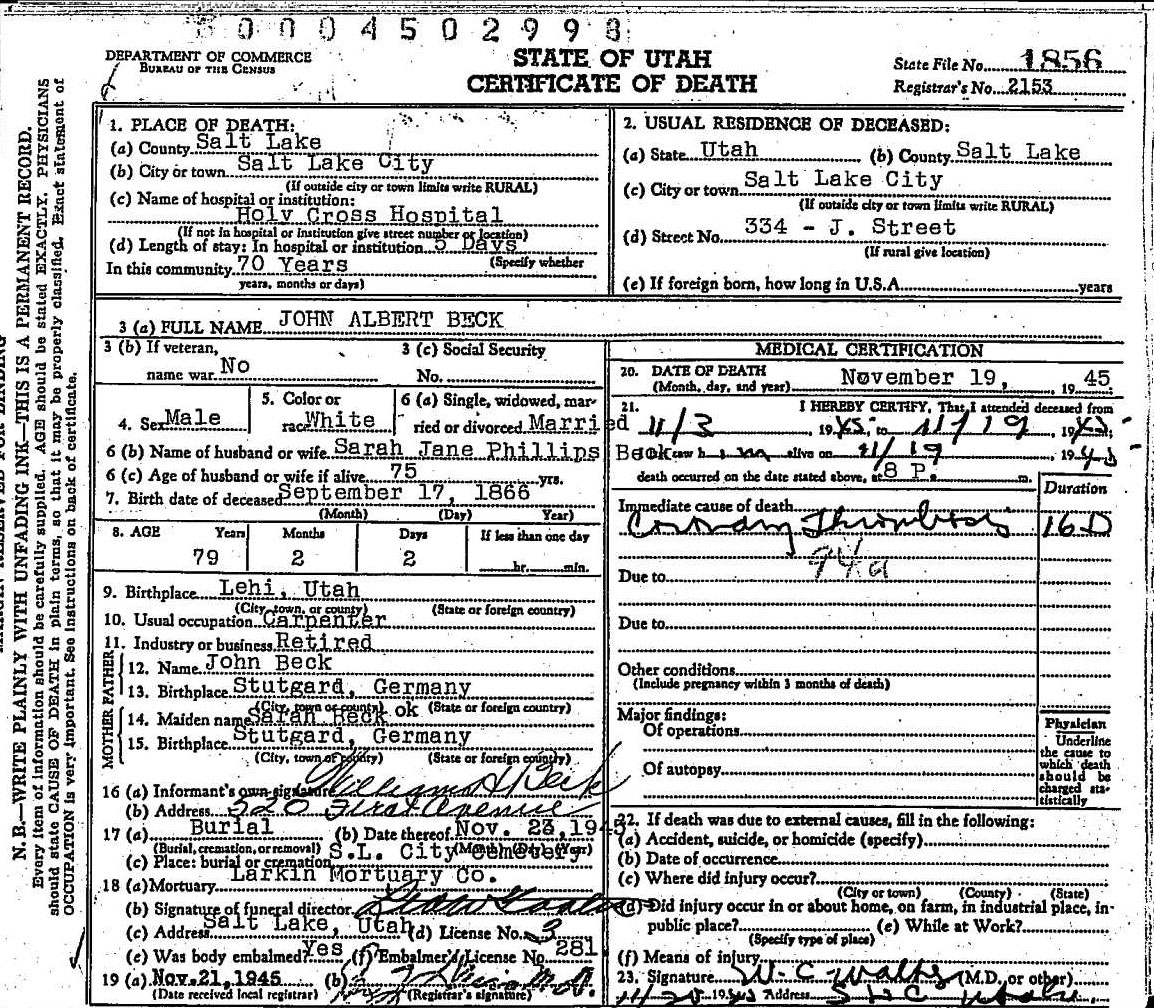 0004502998
DEPARTMENT OF COMMERCE
BUREAU OF THE CENSUS
STATE OF UTAH
CERTIFICATE OF DEATH
State File No. 1856
Registrar's No. 2153
N. B.—WRITE PLAINLY WITH UNFADING INK—THIS IS A PERMANENT RECORD.
Every item of information should be carefully supplied. AGE should be stated EXACTLY. PHYSICIANS
should state CAUSE OF DEATH in plain terms, so that it may be properly classified. Exact statement of
OCCUPATION is very important. See instructions on back of certificate.
1. PLACE OF DEATH:
(a) County Salt Lake
(b) City or town Salt Lake City
(If outside city or town limits write RURAL)
(c) Name of hospital or institution:
Holy Cross Hospital
(If not in hospital or institution give street number or location)
(d) Length of stay: In hospital or institution 5 Days
(Specify whether
In this community 70 Years
years, months or days)
2. USUAL RESIDENCE OF DECEASED:
(a) State Utah (b) County Salt Lake
(c) City or town Salt Lake City
(If outside city or town limits write RURAL)
(d) Street No. 334 - J. Street
(If rural give location)
(e) If foreign born, how long in U.S.A. years
3 (a) FULL NAME JOHN ALBERT BECK
3 (b) If veteran,
name war No
3 (c) Social Security
No.
4. Sex Male
5. Color or
race White
6 (a) Single, widowed, mar-
ried or divorced Married
6 (b) Name of husband or wife Sarah Jane Phillips Beck
6 (c) Age of husband or wife if alive 75 yrs.
7. Birth date of deceased September 17, 1866
(Month) (Day) Year)
8. AGE Years Months Days If less than one day
79 2 2 hr. min.
9. Birthplace Lehi, Utah
(City, town, or county) (State or foreign country)
10. Usual occupation Carpenter
11. Industry or business Retired
FATHER
12. Name John Beck
13. Birthplace Stutgard, Germany
(City, town or county) (State or foreign country)
MOTHER
14. Maiden name Sarah Beck ok
15. Birthplace Stutgard, Germany
(City, town or county) (State or foreign country)
16 (a) Informant's own signature Williams Beck
(b) Address 520 First Avenue
17 (a) Burial (b) Date thereof Nov. 23, 1945
(Burial, cremation, or removal) (Month) (Day) (Year)
(c) Place: burial or cremation S.L. City Cemetery
18 (a) Mortuary Larkin Mortuary Co.
(b) Signature of funeral director
(c) Address Salt Lake, Utah (d) License No. 3
(e) Was body embalmed? Yes (f) Embalmer's License No. 281
19 (a) Nov. 21, 1945 (b) M.D.
(Date received local registrar) (Registrar's signature)
MEDICAL CERTIFICATION
20. DATE OF DEATH
(Month, day, and year) November 19, 1945
21. I HEREBY CERTIFY, That I attended deceased from
11/3 1945 to 11/19, 1945
saw him alive on 11/19, 1945
death occurred on the date stated above, at 8 P. m.
Duration
Immediate cause of death
Coronary Thrombosis 16 D
94a
Due to
Due to
Other conditions
(Include pregnancy within 3 months of death)
Major findings:
Of operations
Of autopsy
Physician
Underline
the cause to
which death
should be
charged sta-
tistically
22. If death was due to external causes, fill in the following:
(a) Accident, suicide, or homicide (specify)
(b) Date of occurrence
(c) Where did injury occur?
(City or town) (County) (State)
(d) Did injury occur in or about home, on farm, in industrial place, in
public place? (e) While at Work?
(Specify type of place)
(f) Means of injury
23. Signature W. C. Walker (M.D. or other)
11/20 1945 Address S L C Utah